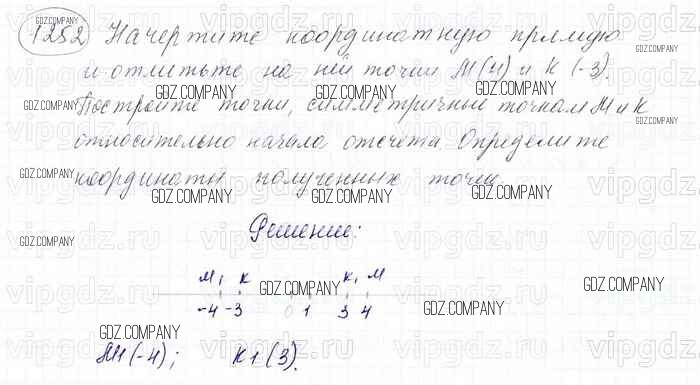 1252 Начертите координатную прямую
и отметьте на ней точки М(4) и К(-3).
Постройте точки, симметричные точкам М и К
относительно начала отсчета. Определите
координаты полученных точек.
Решение:
М₁ К К₁ М
-4 -3 0 1 3 4
М1(-4); К1(3).
GDZ.COMPANY
vipgdz.ru